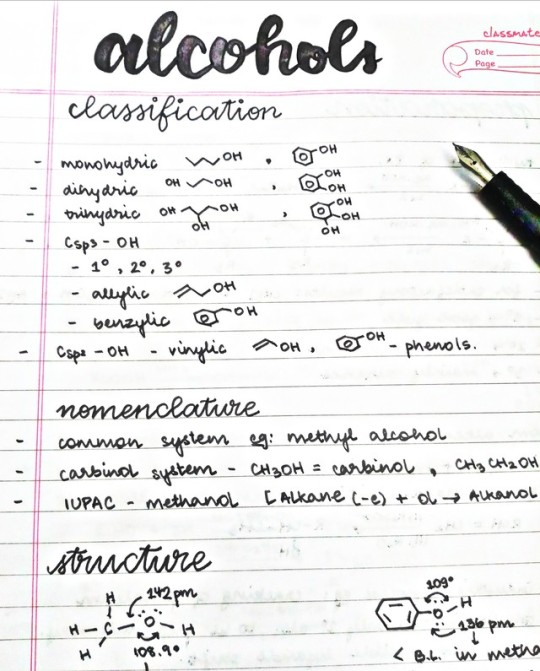 alcohols
classmate
Date
Page
classification
- monohydric OH , OH
- dihydric OH OH , OH OH
- trihydric OH OH OH , OH OH OH
- Csp3 - OH
- 1°, 2°, 3°
- allylic OH
- benzylic OH
- Csp2 - OH - vinylic OH , OH - phenols.
nomenclature
- common system eg: methyl alcohol
- carbinol system - CH3OH = carbinol , CH3CH2OH
- IUPAC - methanol [Alkane (-e) + ol → Alkanol
structure
H 142 pm 109°
H - C O - H O H
H 108.9° 136 pm
< B.L. in